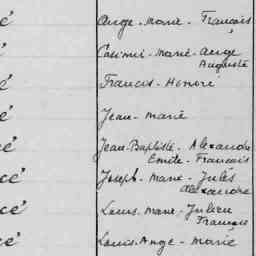 é Ange-Marie-François
é Casimir-Marie-Ange
Auguste
é Francis-Honoré
é Jean-Marie
cé Jean-Baptiste-Alexandre
Emile-Francois
cé Joseph-Marie-Jules
Alexandre
cé Louis-Marie-Julien
François
cé Louis-Ange-Marie